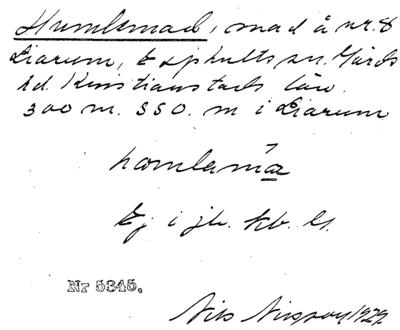 Humlemad, mad å nr. 8
Liarum, Äsphults sn. Gärds
hd. Kristianstads län.
300 m. SSO. m i Liarum
homlama
Ej i jb. kb. ls.
Nr 5345.
Nils Nilsson, 1929